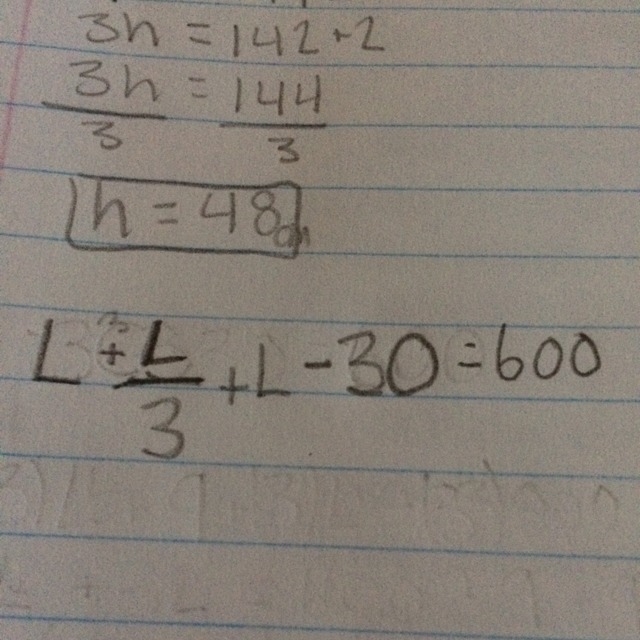 3h = 142 + 2
3h = 144
3 3
h = 48
L + L + L - 30 = 600
3